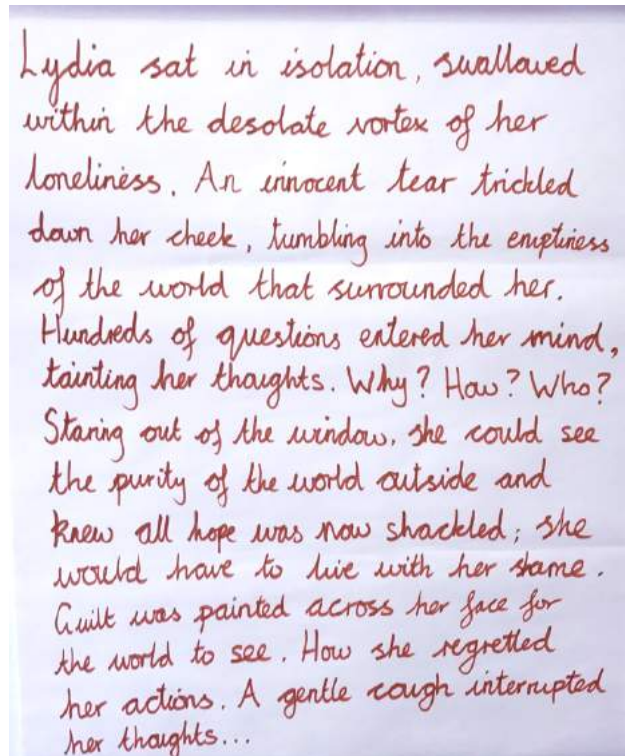 Lydia sat in isolation, swallowed
within the desolate vortex of her
loneliness. An innocent tear trickled
down her cheek, tumbling into the emptiness
of the world that surrounded her.
Hundreds of questions entered her mind,
tainting her thoughts. Why? How? Who?
Staring out of the window, she could see
the purity of the world outside and
knew all hope was now shackled; she
would have to live with her shame.
Guilt was painted across her face for
the world to see. How she regretted
her actions. A gentle cough interrupted
her thoughts...